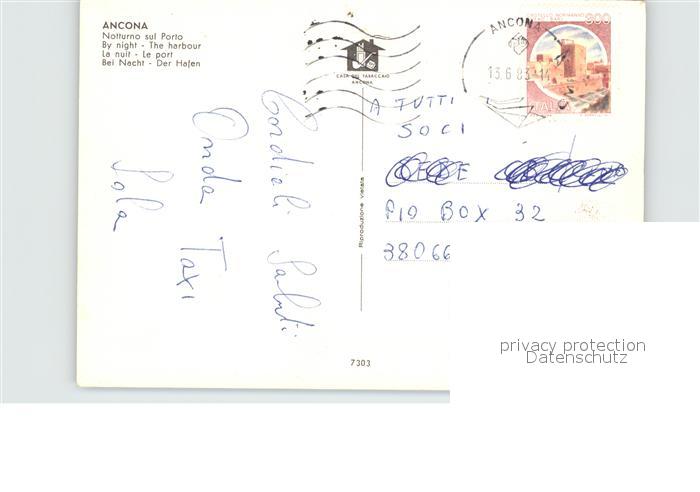 ANCONA
Notturno sul Porto
By night - The harbour
La nuit - Le port
Bei Nacht - Der Hafen
CASA DEL TABACCAIO
ANCONA
ANCONA
13.6.83-14
300
ITALIA
Cordiali Saluti
Onda Taxi
Lola
Riproduzione vietata
A TUTTI
SOCI
PIO BOX 32
38066
7303
privacy protection
Datenschutz